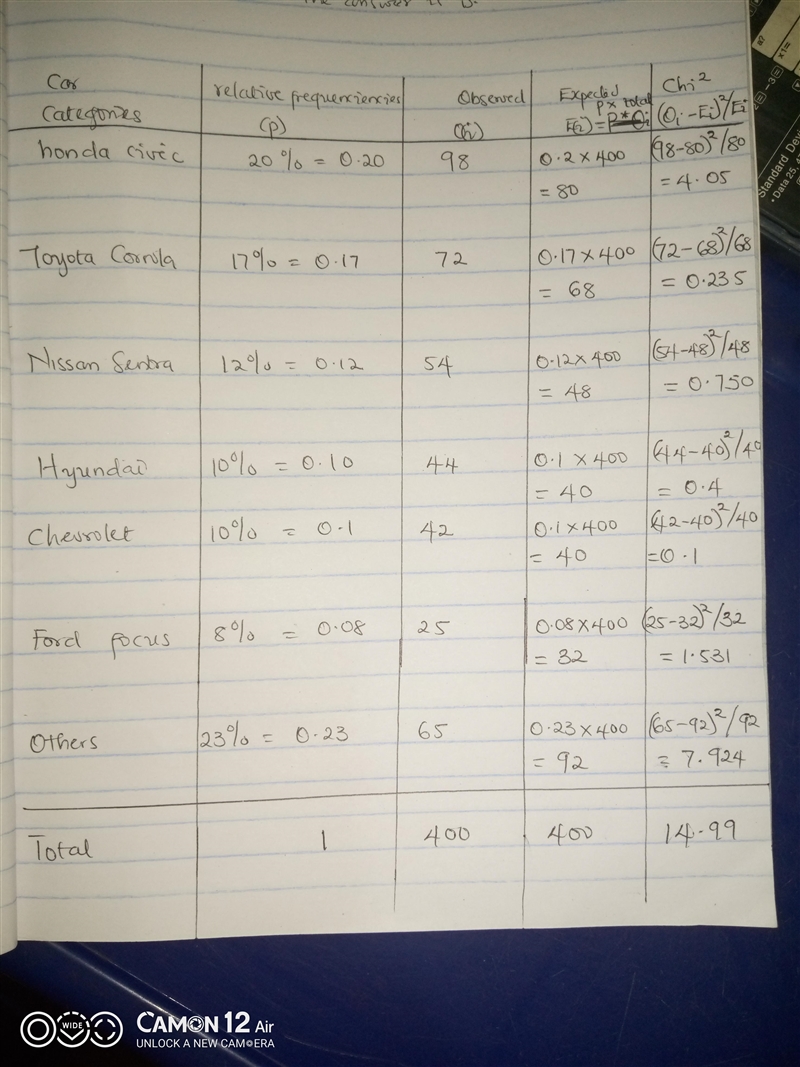 the answer is D.
Car Categories | relative frequenciencies (p) | Observed (Oi) | Expected E(i) = P × total P * Oi | Chi² (Oi - Ei)²/Ei
honda civic | 20% = 0.20 | 98 | 0.2 × 400 = 80 | (98-80)²/80 = 4.05
Toyota Corrola | 17% = 0.17 | 72 | 0.17 × 400 = 68 | (72-68)²/68 = 0.235
Nissan Sentra | 12% = 0.12 | 54 | 0.12 × 400 = 48 | (54-48)²/48 = 0.750
Hyundai | 10% = 0.10 | 44 | 0.1 × 400 = 40 | (44-40)²/40 = 0.4
Chevrolet | 10% = 0.1 | 42 | 0.1 × 400 = 40 | (42-40)²/40 = 0.1
Ford focus | 8% = 0.08 | 25 | 0.08 × 400 = 32 | (25-32)²/32 = 1.531
Others | 23% = 0.23 | 65 | 0.23 × 400 = 92 | (65-92)²/92 = 7.924
Total | 1 | 400 | 400 | 14.99
x1=
Standard Dev
• Data 25,
WIDE
CAMON 12 Air
UNLOCK A NEW CAMERA